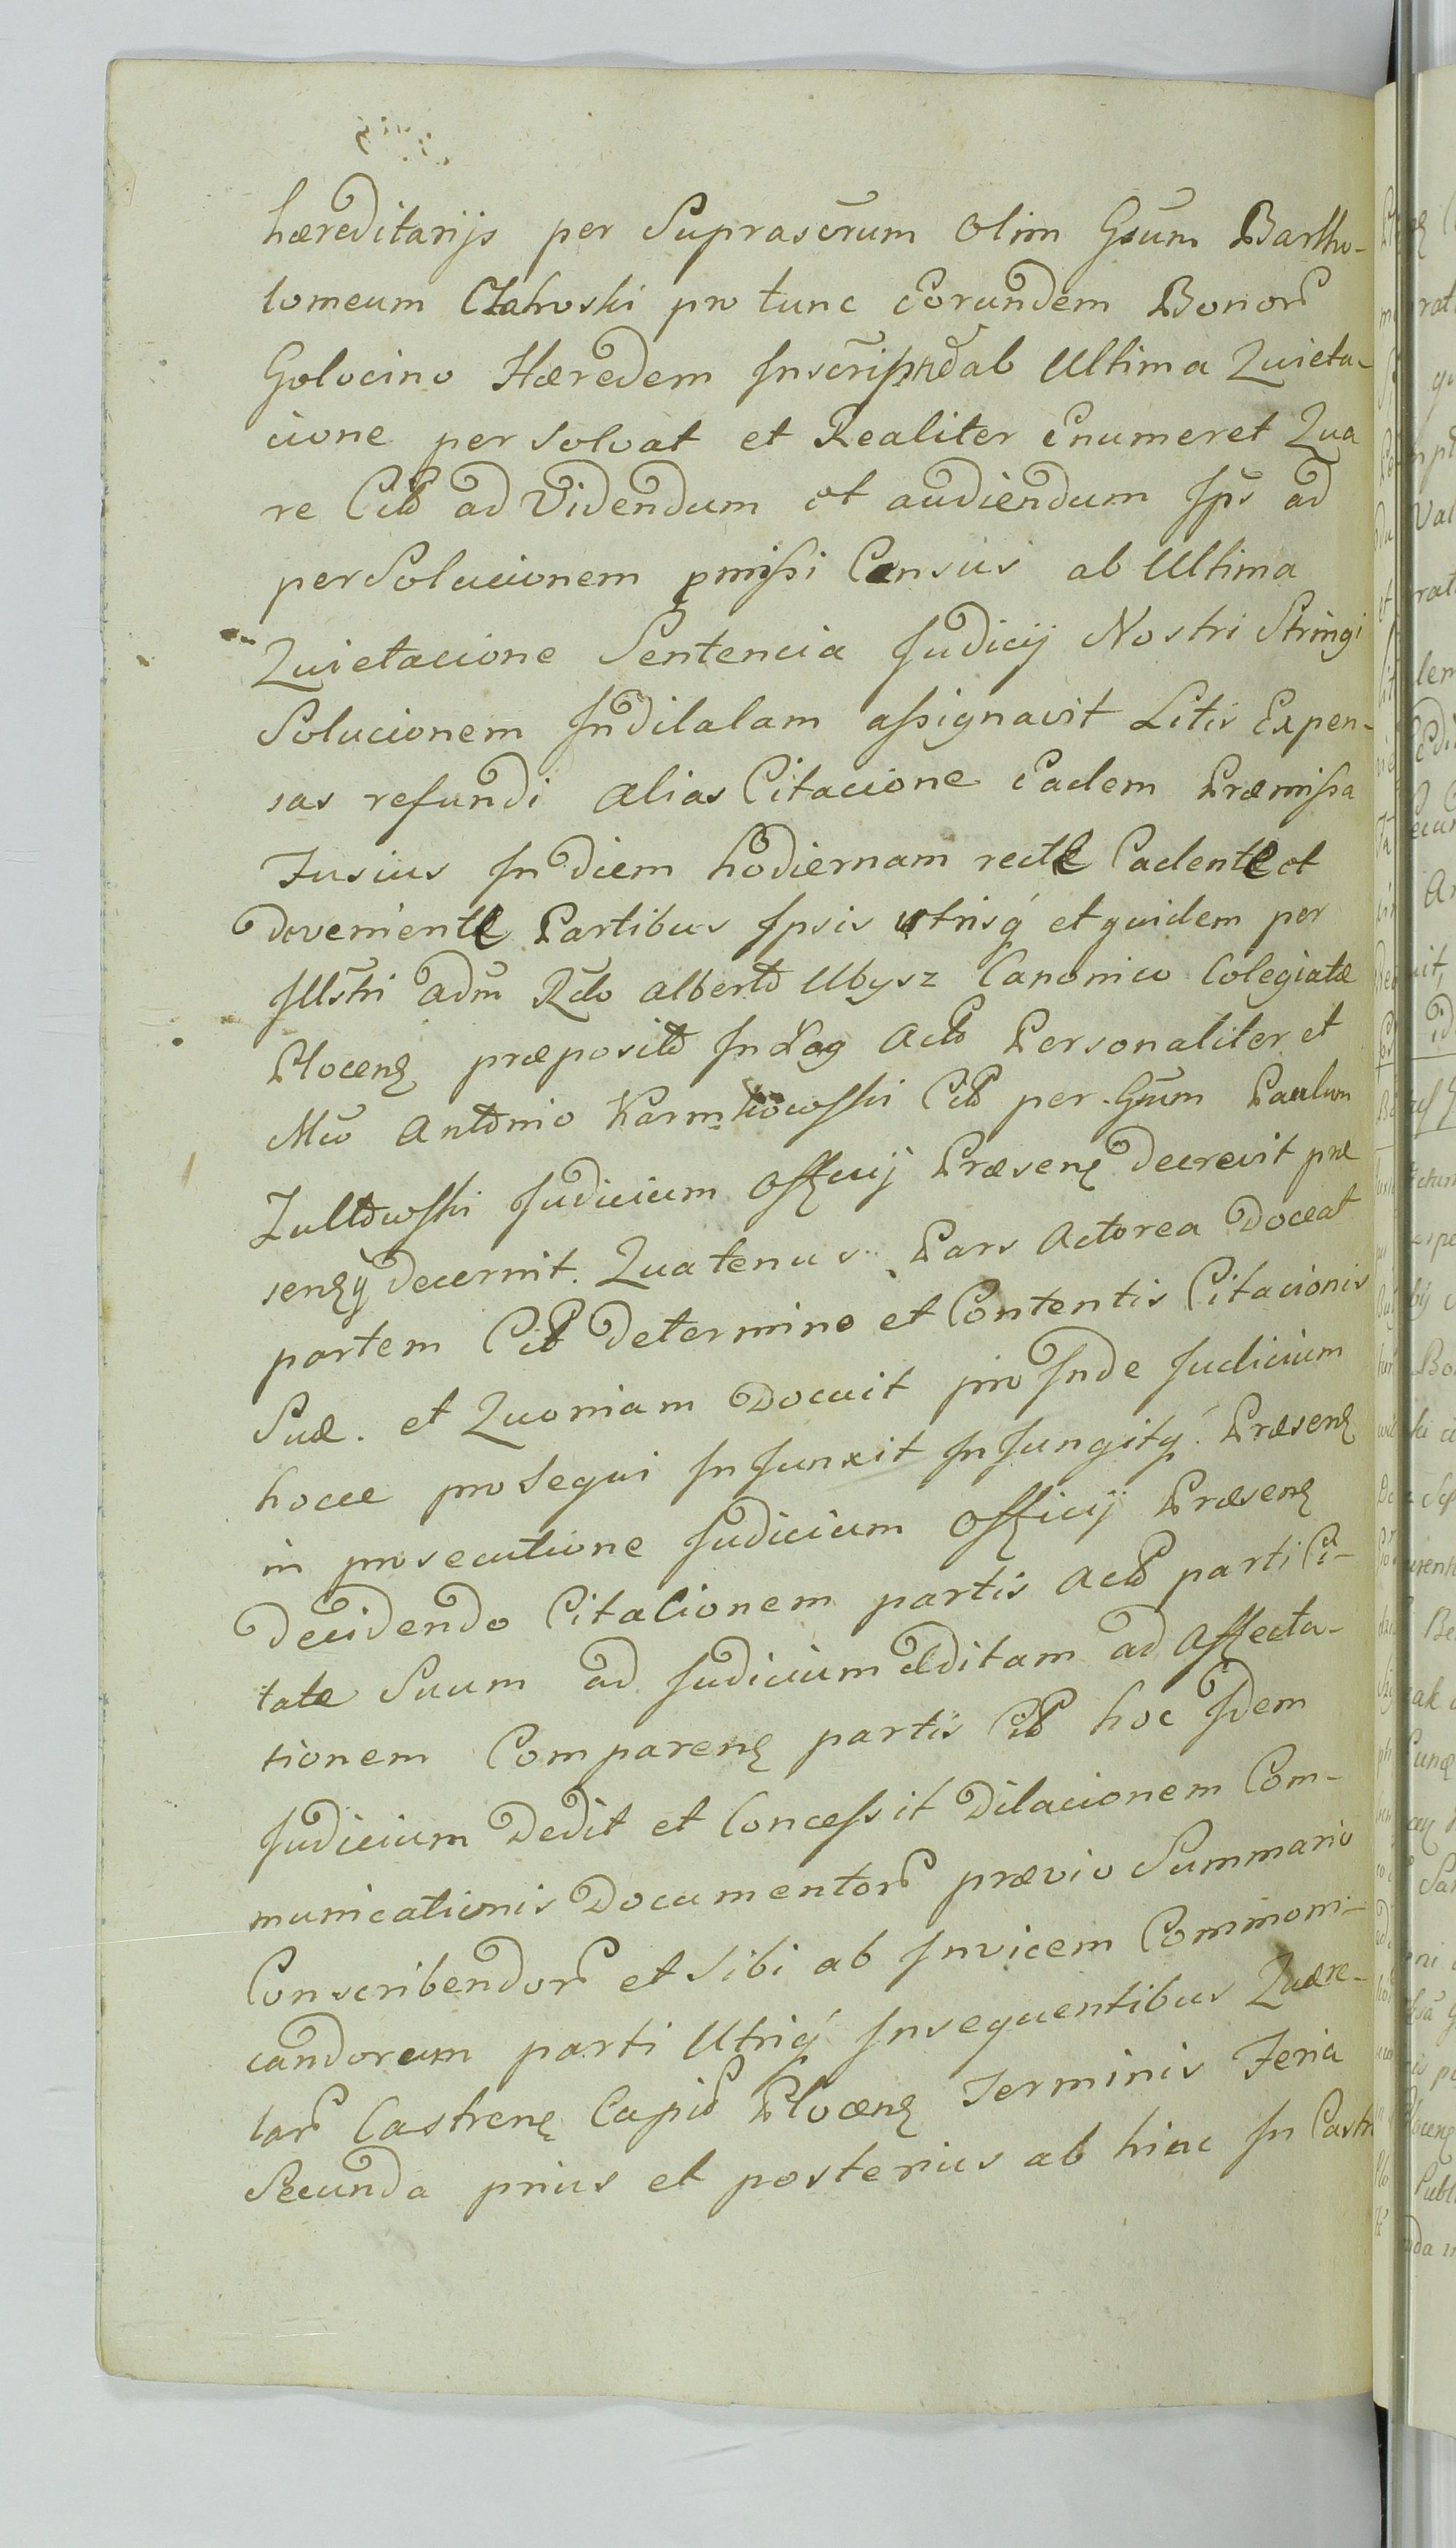 hæreditarijs per Suprascrum Olim Gsum Bartho-
lomeum pro tunc Eorundem Bonor
Golocino Hæredem ab Ultima Quieta-
cione persolvat et Realiter Enumeret Qua
re Citt ad Videndum et audiendum Ips ad
persolucionem pmissi Census ab Ultima
Quietacione Sentencia Judicij Nostri Stringi
Solucionem Indilatam assignavit Litis Expen-
sas refundi alias Citacione Eadem Præmissa
Fusius In diem hodiernam recte Cadente et
deveniente Partibus Ipsis utrisq et quidem per
Illstri adm Rdo alberto Ubysz Canonico Colegiatæ
Plocens præposito In Actt Personaliter et
Mco Antonio Karnkowski Citt per Gsum Paulum
Zultowski Judicium Officij Præsens decrevit præ
sensq decernit. Quatenus Pars Actorea Doceat
partem Citt de termino et Contentis Citacionis
Suæ. et Quoniam Docuit pro Inde Judicium
hocce prosequi Injunxit Injungitq. Præsens
in prosecutione Judicium Officij Præsens
decidendo Citationem partis Actt parti Ci-
tatæ Suum ad Judicium æditam ad affecta-
tionem Comparens partis Citt hoc Idem
Judicium Dedit et Concessit Dilacionem Com-
municationis Documentor prævio Summario
Conscribendor et sibi ab Invicem Communi-
candorum parti Utriq Insequentibus Quære-
lar Castrens Capit Plocens Terminis Feria
Secunda prius et posterius ab hinc In Castr